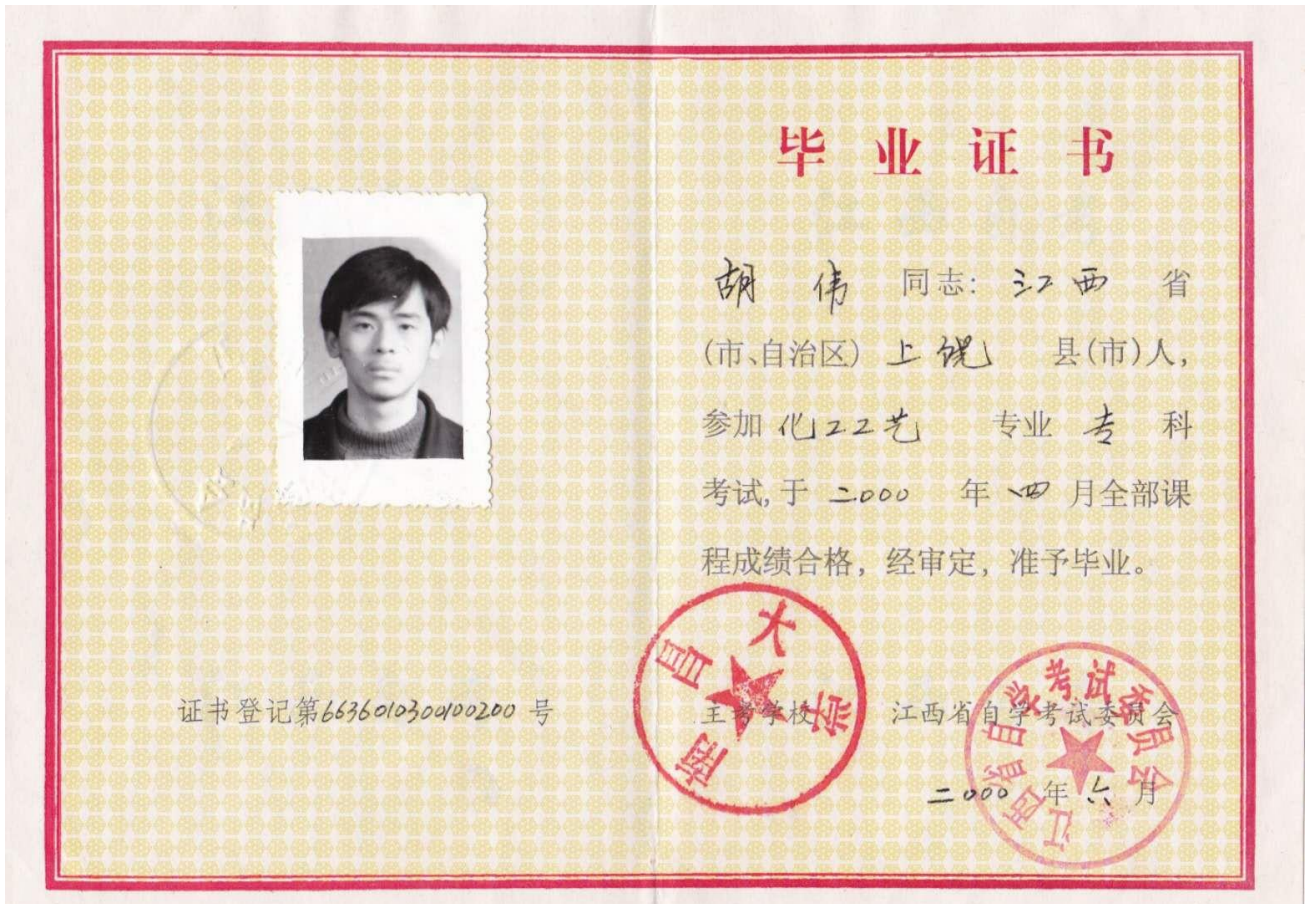 毕业证书
胡伟 同志: 江西 省
(市、自治区) 上饶 县(市)人,
参加 化工工艺 专业 专 科
考试,于 二000 年 四 月全部课
程成绩合格，经审定，准予毕业。
南昌大学
证书登记第6636010300100200 号
主考学校
江西省自学考试委员会
江西省自学考试委员会
二000 年 六 月